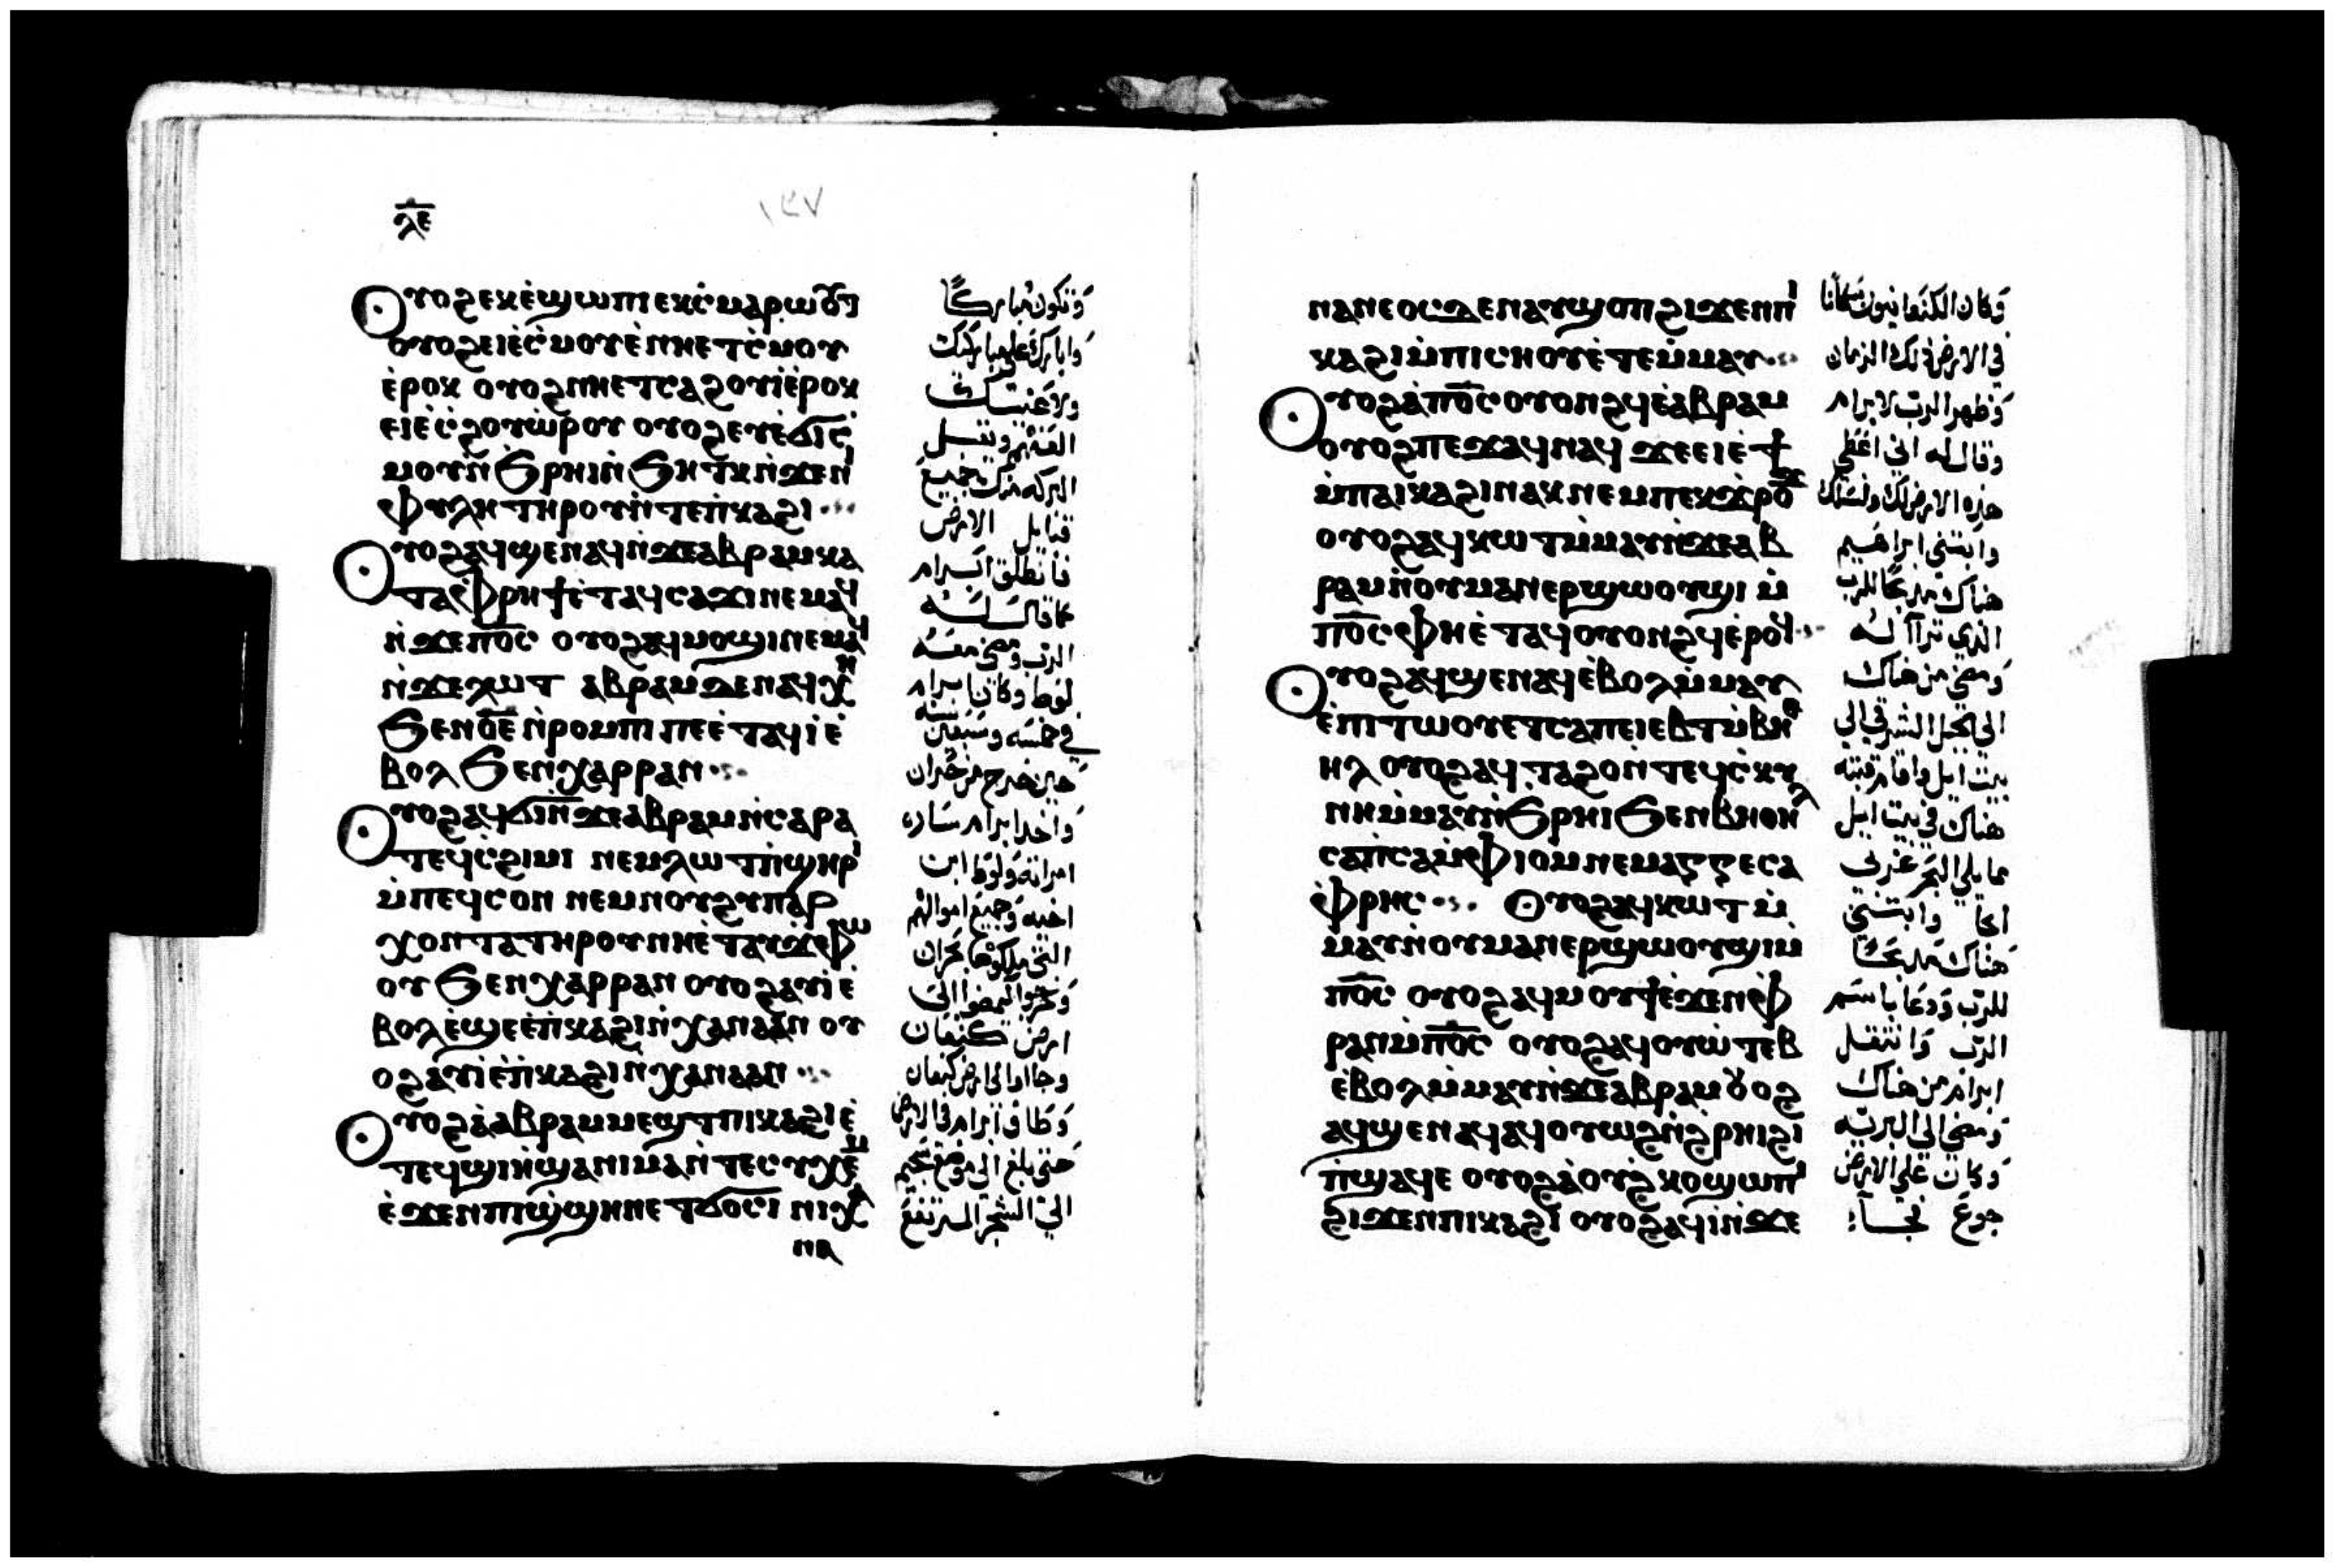 ⲗⲉ
١٤٧
ⲟⲩⲟϩ ⲉⲕⲉ̀ϣⲱⲡⲓ ⲉⲕⲥ̀ⲙⲁⲣⲱⲟⲩⲧ
ⲟⲩⲟϩ ⲉⲓⲉ̀ⲥ̀ⲙⲟⲩ ⲉ̀ⲛⲏⲉⲧⲥ̀ⲙⲟⲩ
ⲉ̀ⲣⲟⲕ ⲟⲩⲟϩ ⲛⲏⲉⲧⲥⲁϩⲟⲩⲓ̀ ⲉ̀ⲣⲟⲕ
ⲉⲓⲉ̀ⲥ̀ϩⲟⲩⲱ̀ⲣⲟⲩ ⲟⲩⲟϩ ⲉⲩⲉ̀ϭⲓⲥ̀
ⲙⲟⲩ ⲛ̀ϧⲣⲏⲓ ⲛ̀ϧⲏⲧⲕ ⲛ̀ϫⲉⲛⲓ
ⲫⲩⲗⲏ ⲧⲏⲣⲟⲩ ⲛ̀ⲧⲉⲡ̀ⲕⲁϩⲓ
ⲟⲩⲟϩ ⲁϥϣⲉⲛⲁϥ ⲛ̀ϫⲉⲁⲃⲣⲁⲙ ⲕⲁ
ⲧⲁⲫⲣⲏϯ ⲉ̀ⲧⲁϥⲥⲁϫⲓ ⲛⲉⲙⲁϥ
ⲛ̀ϫⲉⲡⲟ̅ⲥ̅ ⲟⲩⲟϩ ⲁϥⲙⲟϣⲓ ⲛⲉⲙⲁϥ
ⲛ̀ϫⲉⲗⲱⲧ ⲁⲃⲣⲁⲙ ϫⲉ ⲛⲁϥⲭⲏ
ϧⲉⲛ ⲟ̅ⲉ̅ ⲛ̀ⲣⲟⲙⲡⲓ ⲡⲉ ⲉ̀ⲧⲁϥⲓ̀ ⲉ̀
ⲃⲟⲗ ϧⲉⲛ ⲭⲁⲣⲣⲁⲛ
ⲟⲩⲟϩ ⲁϥϭⲓ ⲛ̀ϫⲉⲁⲃⲣⲁⲙ ⲛ̀ⲥⲁⲣⲁ
ⲧⲉϥⲥ̀ϩⲓⲙⲓ ⲛⲉⲙ ⲗⲱⲧ ⲡ̀ϣⲏⲣⲓ
ⲙ̀ⲡⲉϥⲥⲟⲛ ⲛⲉⲙ ⲛⲟⲩϩⲩⲡⲁⲣ
ⲭⲟⲛⲧⲁ ⲧⲏⲣⲟⲩ ⲛⲏⲉ̀ⲧⲁⲩϫ̀ⲫⲱ
ⲟⲩ ϧⲉⲛ ⲭⲁⲣⲣⲁⲛ ⲟⲩⲟϩ ⲁⲩⲓ̀ ⲉ̀
ⲃⲟⲗ ⲉ̀ϣⲉ ⲉ̀ⲡ̀ⲕⲁϩⲓ ⲛ̀ⲭⲁⲛⲁⲁⲛ ⲟⲩ
ⲟϩ ⲁⲩⲓ̀ ⲉ̀ⲡ̀ⲕⲁϩⲓ ⲛ̀ⲭⲁⲛⲁⲁⲛ
ⲟⲩⲟϩ ⲁ̀ⲁⲃⲣⲁⲙ ⲙⲉϣⲧ ⲡⲓⲕⲁϩⲓ ⲉ̀
ⲧⲉϥϣⲓⲏ ϣⲁ ⲡⲓⲙⲁ ⲛ̀ⲧⲉⲥⲩⲭⲉⲙ
ⲉ̀ϫⲉⲛ ⲡⲓϣ̀ϣⲏⲛ ⲉⲧϭⲟⲥⲓ ⲛⲓⲭⲁ
ⲛⲁ
وتكون مباركًا
وابارك علي مباركيك
ولاعنيك
العنهم وتتبل
البركه منك جميع
قبايل الارض
فانطلق ابرام
كما قال له
الرب ومضي معه
لوط وكان ابرام
في خمسه وسبعين سنه
حين خرج من حران
واخد ابرام ساره
امراته ولوط ابن
اخيه وجميع اموالهم
التي ملكوها بحران
وخرجوا ليمضوا الي
ارض كنعان
وجااوا الي ارض كنعان
وطاف ابرام في الارض
حتي بلغ الي موضع شجيم
الي الشجر المرتفع
ⲛⲁⲛⲉⲟⲥ ϫⲉ ⲛⲁⲩϣⲟⲡ ϩⲓϫⲉⲛ ⲡⲓ
ⲕⲁϩⲓ ⲙ̀ⲡⲓⲥⲏⲟⲩ ⲉ̀ⲧⲉⲙ̀ⲙⲁⲩ
ⲟⲩⲟϩ ⲁ̀ⲡⲟ̅ⲥ̅ ⲟⲩⲟⲛϩϥ ⲉ̀ⲁⲃⲣⲁⲙ
ⲟⲩⲟϩ ⲡⲉϫⲁϥ ⲛⲁϥ ϫⲉ ⲉⲓⲉ̀ϯ
ⲙ̀ⲡⲁⲓⲕⲁϩⲓ ⲛⲁⲕ ⲛⲉⲙ ⲡⲉⲕϫ̀ⲣⲟϫ
ⲟⲩⲟϩ ⲁϥⲕⲱⲧ ⲙ̀ⲙⲁⲩ ⲛ̀ϫⲉⲁⲃ
ⲣⲁⲙ ⲛ̀ⲟⲩⲙⲁⲛⲉⲣϣⲱⲟⲩϣⲓ ⲙ̀
ⲡⲟ̅ⲥ̅ ⲫⲏⲉ̀ⲧⲁϥⲟⲩⲟⲛϩϥ ⲉ̀ⲣⲟϥ
ⲟⲩⲟϩ ⲁϥϣⲉⲛⲁϥ ⲉ̀ⲃⲟⲗ ⲙ̀ⲙⲁⲩ
ⲉ̀ⲡⲓⲧⲱⲟⲩ ⲉⲧⲥⲁⲡⲉⲓⲉⲃⲧ ⲙ̀ⲃⲏⲑ
ⲏⲗ ⲟⲩⲟϩ ⲁϥⲧⲁϩⲟ ⲛ̀ⲧⲉϥⲥ̀ⲕⲩ
ⲛⲏ ⲙ̀ⲙⲁⲩ ⲛ̀ϧⲣⲏⲓ ϧⲉⲛ ⲃⲏⲑⲏⲗ
ⲥⲁⲡ̀ⲥⲁ ⲙ̀ⲫⲓⲟⲙ ⲛⲉⲙ ⲁⲅⲅⲉ ⲥⲁ
ⲉ̀ⲫⲣⲏⲥ ⲟⲩⲟϩ ⲁϥⲕⲱⲧ ⲙ̀
ⲙⲁⲩ ⲛ̀ⲟⲩⲙⲁⲛⲉⲣϣⲱⲟⲩϣⲓ ⲙ̀
ⲡⲟ̅ⲥ̅ ⲟⲩⲟϩ ⲁϥⲙⲟⲩϯ ⲉ̀ϫⲉⲛ ⲫ
ⲣⲁⲛ ⲙ̀ⲡⲟ̅ⲥ̅ ⲟⲩⲟϩ ⲁϥⲟⲩⲱ̀ⲧⲉⲃ
ⲉ̀ⲃⲟⲗ ⲙ̀ⲙⲁⲩ ⲛ̀ϫⲉⲁⲃⲣⲁⲙ ⲟⲩⲟϩ
ⲁϥϣⲉⲛⲁϥ ⲁϥⲟⲩⲱϩ ⲛ̀ϩⲣⲏⲓ ϩⲓ
ⲡ̀ϣⲁϥⲉ ⲟⲩⲟϩ ⲁ̀ⲟⲩϩ̀ⲕⲟ ϣⲱⲡⲓ
ϩⲓϫⲉⲛ ⲡⲓⲕⲁϩⲓ ⲟⲩⲟϩ ⲁϥⲓ̀ ⲛ̀ϫⲉ
وكان الكنعانيون سكانًا
في الارض في ذلك الزمان
وظهر الرب لابرام
وقال له اني اعطي
هذه الارض لك ولنسلك
وابتني ابراهيم
هناك مدبحًا للرب
الذي تراآ له
ومضي من هناك
الي الجبل الشرقي الي
بيت ايل واقام قبته
هناك في بيت ايل
مما يلي البحر غربي
وابتني
هناك مدبحًا
للرب ودعا باسم
الرب وانتقل
ابرام من هناك
ومضي الي البريه
وكان علي الارض
جوع فجآ